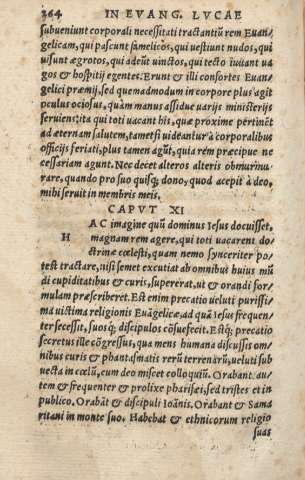 364 IN EVANG. LVCAE
subueniunt corporali necessitati tractantiũ rem Euan-
gelicam, qui pascunt famelicos, qui uestiunt nudos, qui
uisunt ægrotos, qui adeũt uinctos, qui tecto iuuant ua
gos & hospitij egentes. Erunt & illi consortes Euan-
gelici præmij, sed quemadmodum in corpore plus agit
oculus ociosus, quàm manus assidue uarijs ministerijs
seruiens, ita qui toti uacant his, quæ proxime pertinẽt
ad æternam salutem, tametsi uideantur à corporalibus
officijs feriati, plus tamen agũt, quia rem præcipue ne
cessariam agunt. Nec decet alteros alteris obmurmu-
rare, quando pro suo quisq; dono, quod accepit à deo,
mihi seruit in membris meis.
CAPVT XI
H AC imagine quũ dominus Iesus docuisset,
magnam rem agere, qui toti uacarent do-
ctrinæ cœlesti, quam nemo synceriter po-
test tractare, nisi semet excutiat ab omnibus huius mũ
di cupiditatibus & curis, supererat, ut & orandi for-
mulam præscriberet. Est enim precatio ueluti purissi-
ma uictima religionis Euãgelicæ, ad quã Iesus frequen-
ter secessit, suosq; discipulos cõsuefecit. Estq; precatio
secretus ille cõgressus, quo mens humana discussis om
nibus curis & phantasmatis rerũ terrenarũ, ueluti sub
uecta in cœlũ, cum deo miscet colloquiũ. Orabant au-
tem & frequenter & prolixe pharisæi, sed tristes et in
publico. Orabãt & discipuli Ioãnis. Orabant & Sama
ritani in monte suo. Habebat & ethnicorum religio
suas